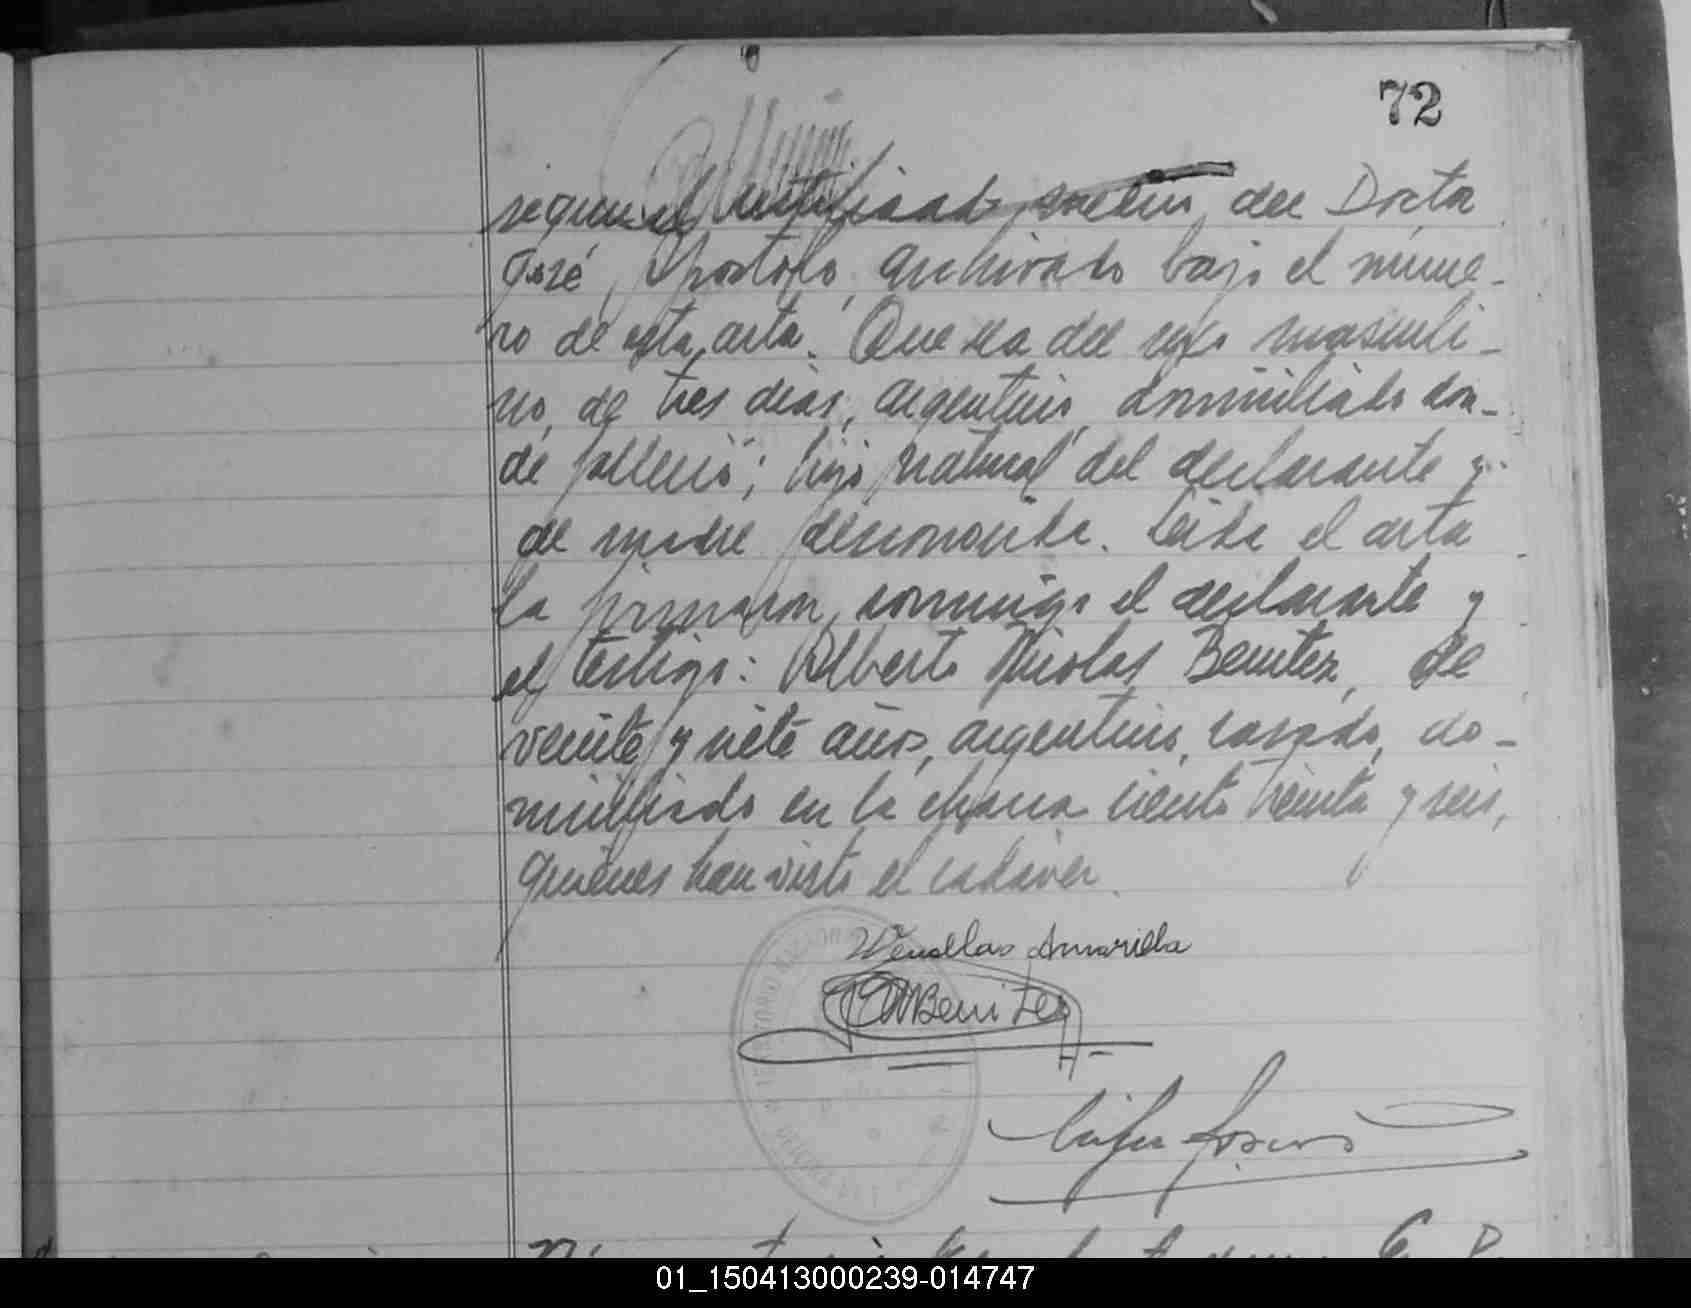 72
según el certificado médico del Doctor
José Apostolo, archivado bajo el núme-
ro de esta acta. Que era del sexo masculi-
no, de tres días, argentino, domiciliado don-
de falleció; hijo natural del declarante y
de madre desconocida. Leída el acta
la firmaron conmigo el declarante y
el testigo: Alberto Nicolas Benitez, de
veinte y siete años, argentino, casado, do-
miciliado en la chacra ciento treinta y seis,
quienes han visto el cadáver.
Wenseslao Amarilla
Benitez
01_150413000239-014747